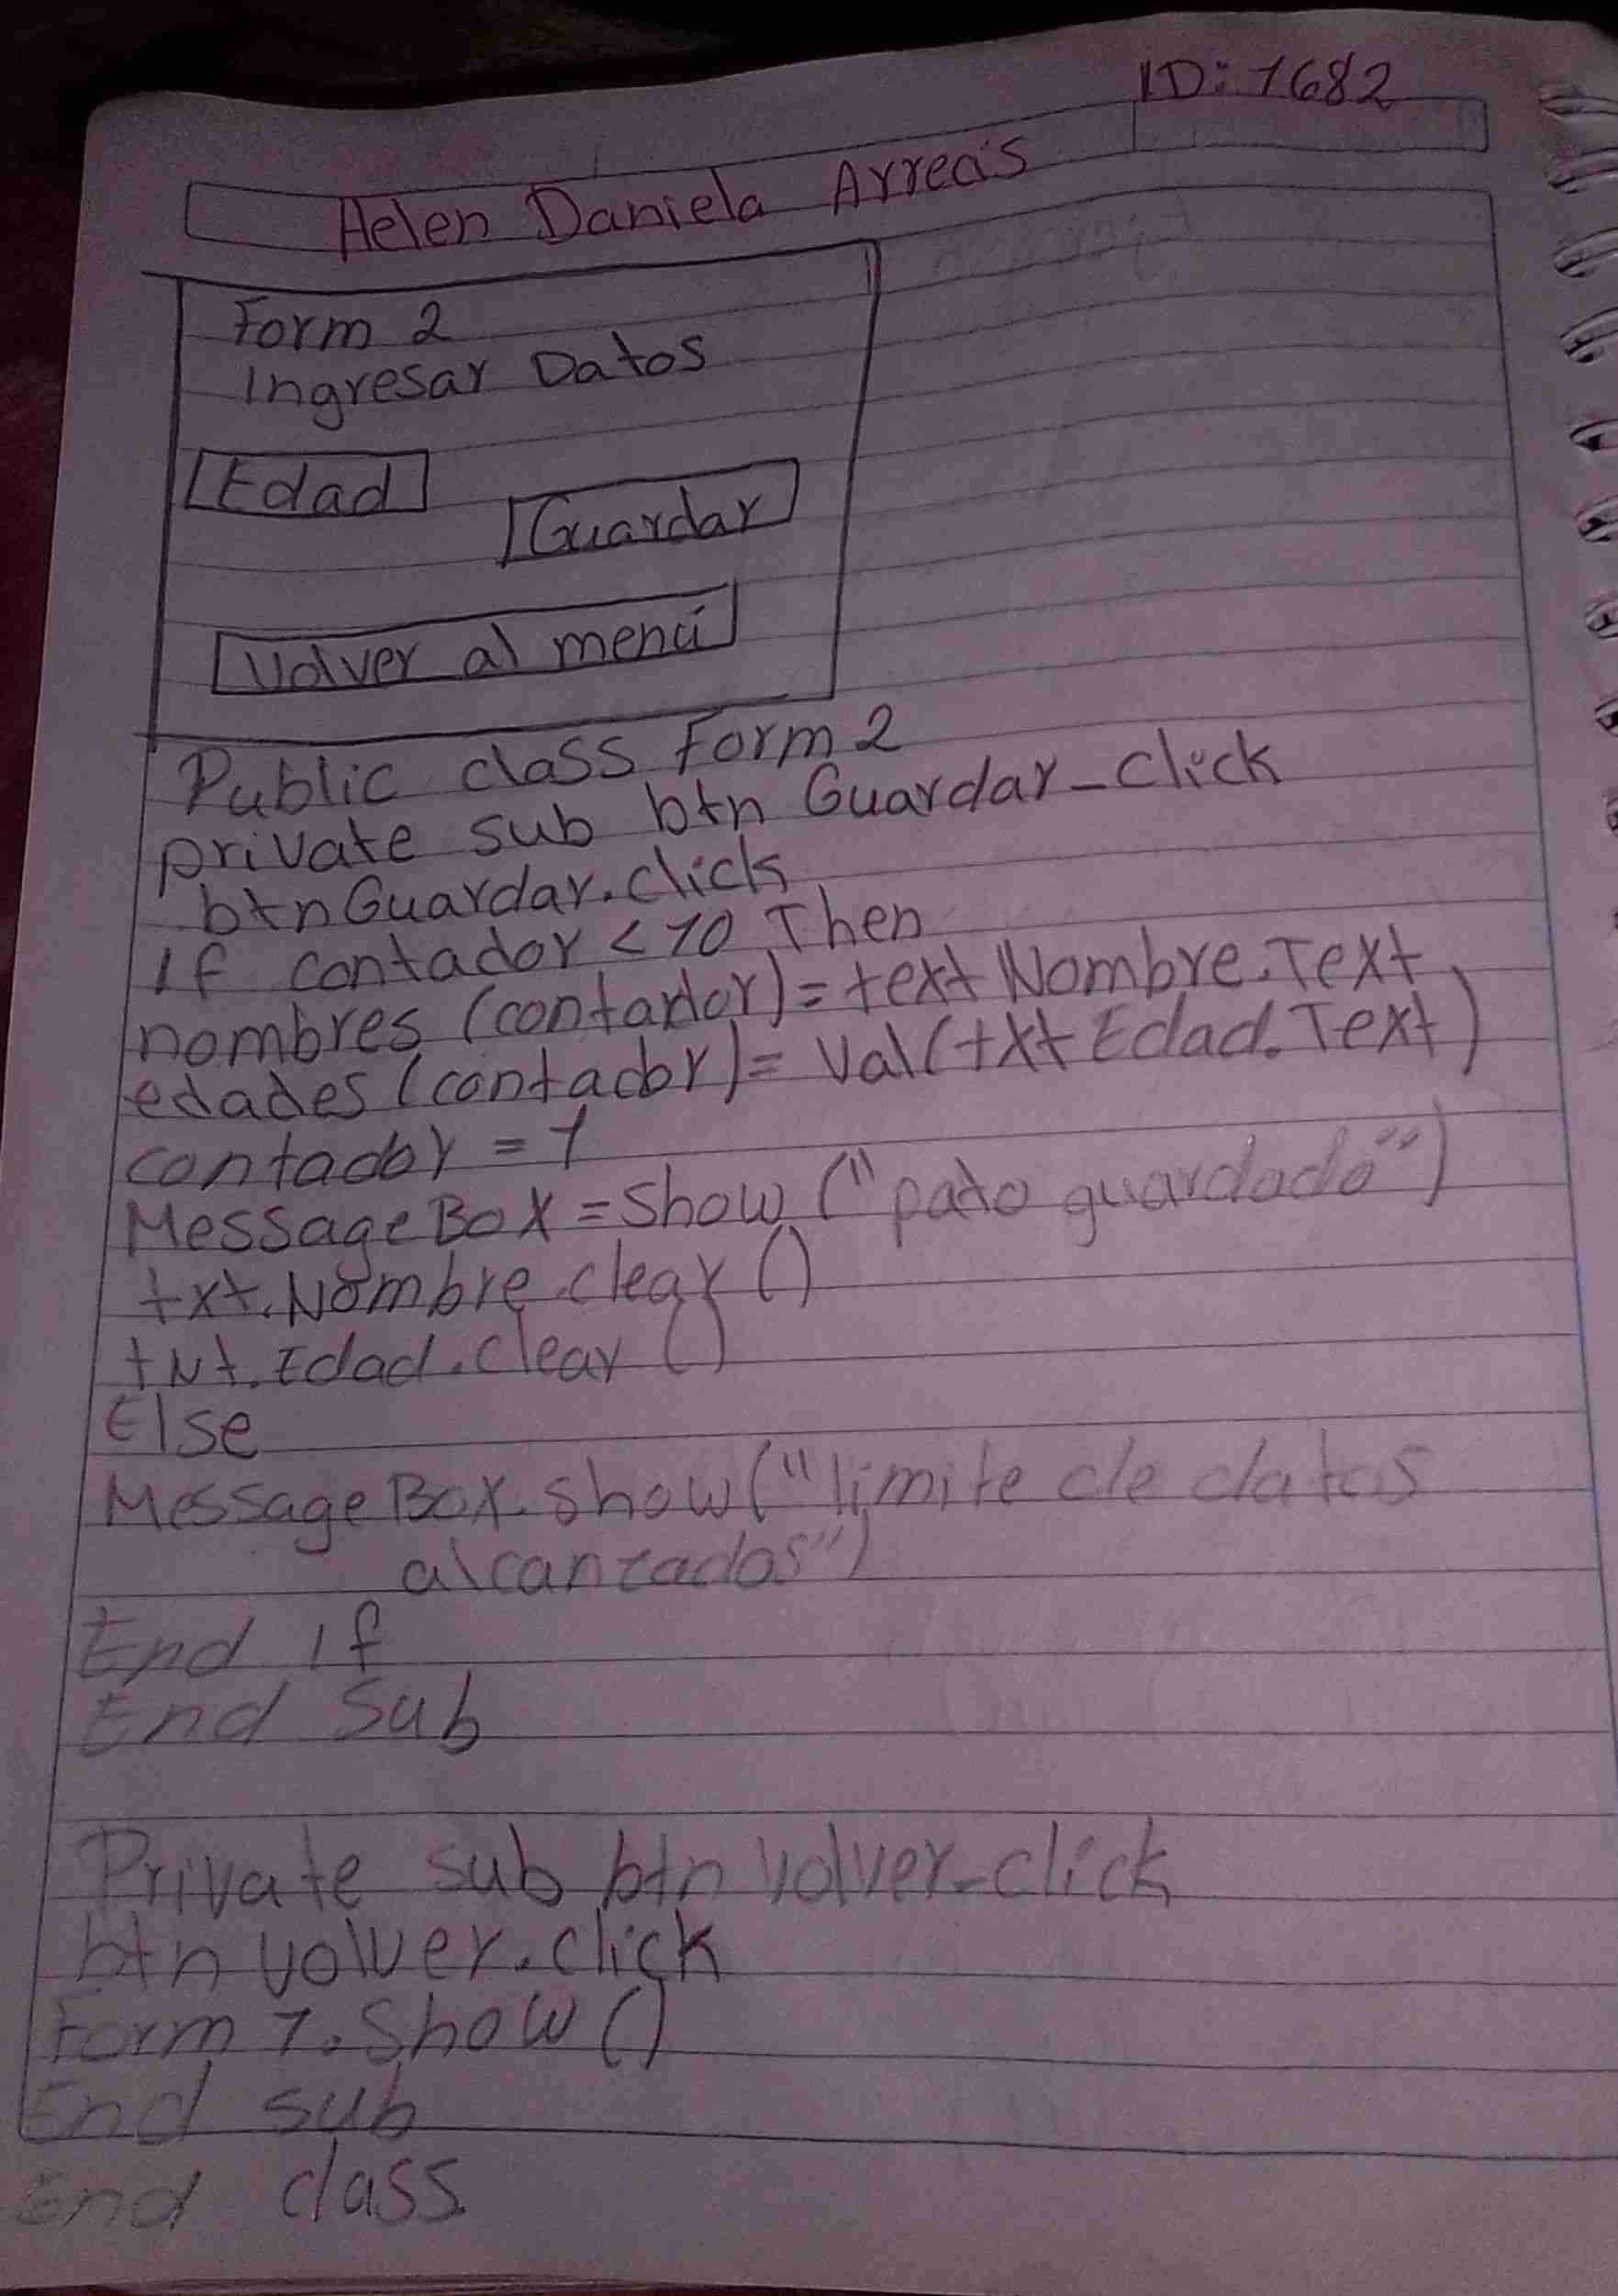 ID: 1682
Helen Daniela Arreas
Form 2
Ingresar Datos
Edad
Guardar
Volver al menú
Public class Form 2
private sub btn Guardar_click
btnGuardar.click
If contador < 10 Then
nombres (contador) = text Nombre.Text
edades (contador) = Val(txt Edad.Text)
contador = 1
MessageBox = show ("pato guardado")
txt.Nombre.clear ()
txt.Edad.clear ()
Else
MessageBox.show ("limite de datos
alcanzados")
End If
End Sub
Private sub btn volver_click
btn volver.click
Form 1.Show ()
End sub
End class